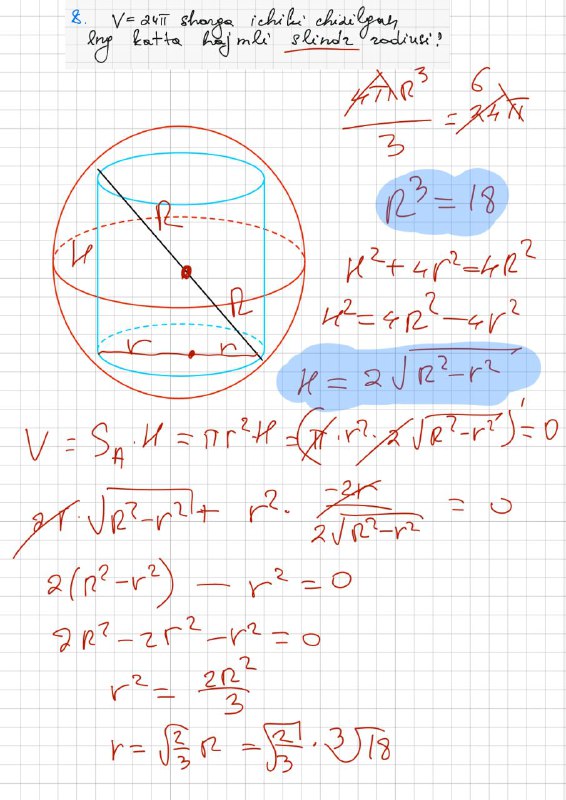 8. V=24π sharga ichki chizilgan
Eng katta hajmli slindr radiusi?
4πR³/3 = 24π 6
R³=18
H
R
R
r
r
H²+4r²=4R²
H²=4R²-4r²
H = 2√(R²-r²)
V = S_A·H = πr²H =(π·r²·2√(R²-r²))'=0
2r·√(R²-r²) + r²· -2r/(2√(R²-r²)) = 0
2(R²-r²) - r² = 0
2R²-2r²-r²=0
r² = 2R²/3
r=√(2/3) R = √(2/3) · ³√18